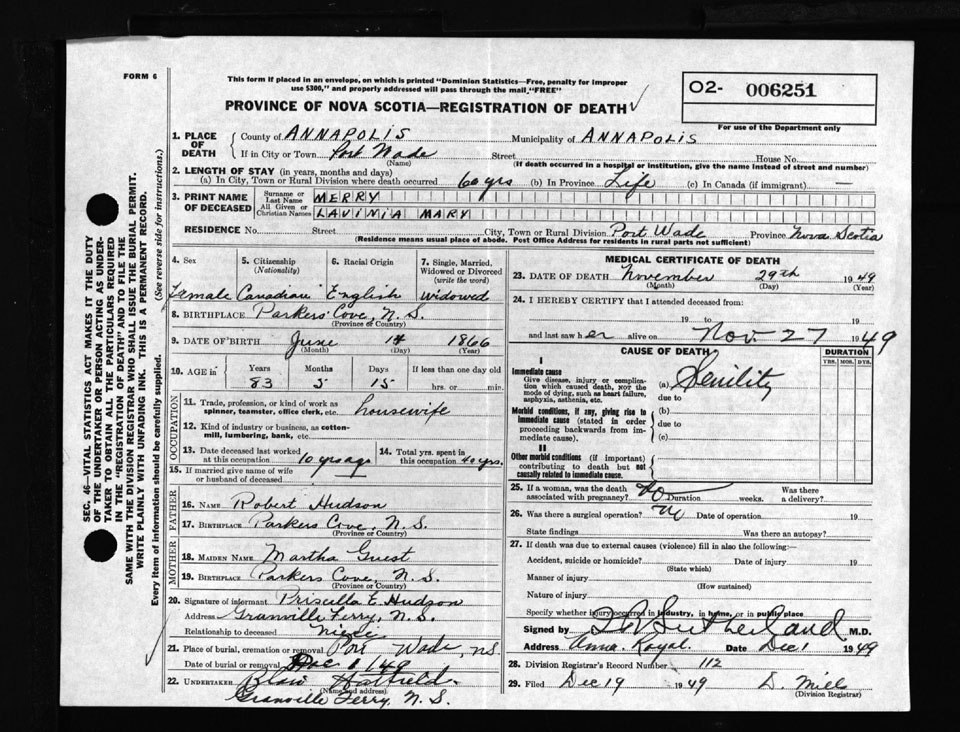 FORM 6
This form if placed in an envelope, on which is printed "Dominion Statistics—Free, penalty for improper
use $300," and properly addressed will pass through the mail "FREE"
PROVINCE OF NOVA SCOTIA—REGISTRATION OF DEATH
O2- 006251
For use of the Department only
SEC. 46—VITAL STATISTICS ACT MAKES IT THE DUTY
OF THE UNDERTAKER OR PERSON ACTING AS UNDER-
TAKER TO OBTAIN ALL THE PARTICULARS REQUIRED
IN THE "REGISTRATION OF DEATH" AND TO FILE THE
SAME WITH THE DIVISION REGISTRAR WHO SHALL ISSUE THE BURIAL PERMIT.
WRITE PLAINLY WITH UNFADING INK. THIS IS A PERMANENT RECORD.
Every item of information should be carefully supplied. (See reverse side for instructions.)
1. PLACE OF DEATH County of ANNAPOLIS Municipality of ANNAPOLIS
If in City or Town Port Wade Street House No.
(Name) (If death occurred in a hospital or institution, give the name instead of street and number)
2. LENGTH OF STAY (in years, months and days)
(a) In City, Town or Rural Division where death occurred 60 yrs (b) In Province Life (c) In Canada (if immigrant) —
3. PRINT NAME OF DECEASED Surname or Last Name MERRY
All Given or Christian Names LAVINIA MARY
RESIDENCE No. Street City, Town or Rural Division Port Wade Province Nova Scotia
(Residence means usual place of abode. Post Office Address for residents in rural parts not sufficient)
4. Sex 5. Citizenship (Nationality) 6. Racial Origin 7. Single, Married, Widowed or Divorced (write the word)
Female Canadian English Widowed
8. BIRTHPLACE Parkers' Cove, N.S.
(Province or Country)
9. DATE OF BIRTH June 14 1866
(Month) (Day) (Year)
10. AGE in Years Months Days If less than one day old
83 5 15 hrs. or min.
OCCUPATION
11. Trade, profession, or kind of work as spinner, teamster, office clerk, etc. housewife
12. Kind of industry or business, as cotton-mill, lumbering, bank, etc.
13. Date deceased last worked at this occupation 10 yrs ago 14. Total yrs. spent in this occupation 40 yrs.
15. If married give name of wife or husband of deceased
FATHER
16. NAME Robert Hudson
17. BIRTHPLACE Parkers Cove, N.S.
(Province or Country)
MOTHER
18. MAIDEN NAME Martha Guest
19. BIRTHPLACE Parkers Cove, N.S.
(Province or Country)
20. Signature of informant Priscilla E. Hudson
Address Granville Ferry, N.S.
Relationship to deceased Niece
21. Place of burial, cremation or removal Port Wade, NS
Date of burial or removal Dec 1/49
22. UNDERTAKER Hatfield
(Name and address)
Granville Ferry, N.S.
MEDICAL CERTIFICATE OF DEATH
23. DATE OF DEATH November 29th 1949
(Month) (Day) (Year)
24. I HEREBY CERTIFY that I attended deceased from:
19 to 19
and last saw her alive on Nov. 27 1949
CAUSE OF DEATH DURATION
YRS. MOS. DYS.
I
Immediate cause
Give disease, injury or complication which caused death, NOT the mode of dying, such as heart failure, asphyxia, asthenia, etc. (a) Senility
due to
Morbid conditions, if any, giving rise to immediate cause (stated in order proceeding backwards from immediate cause). (b)
due to
(c)
II
Other morbid conditions (if important) contributing to death but not causally related to immediate cause.
25. If a woman, was the death associated with pregnancy? No Duration weeks. Was there a delivery?
26. Was there a surgical operation? Date of operation 19
State findings Was there an autopsy?
27. If death was due to external causes (violence) fill in also the following:—
Accident, suicide or homicide? Date of injury 19
(State which)
Manner of injury
(How sustained)
Nature of injury
Specify whether injury occurred in industry, in home, or in public place
Signed by Sutherland M.D.
Address Anna. Royal. Date Dec 1 1949
28. Division Registrar's Record Number 112
29. Filed Dec 19 1949 D. Mills
(Division Registrar)